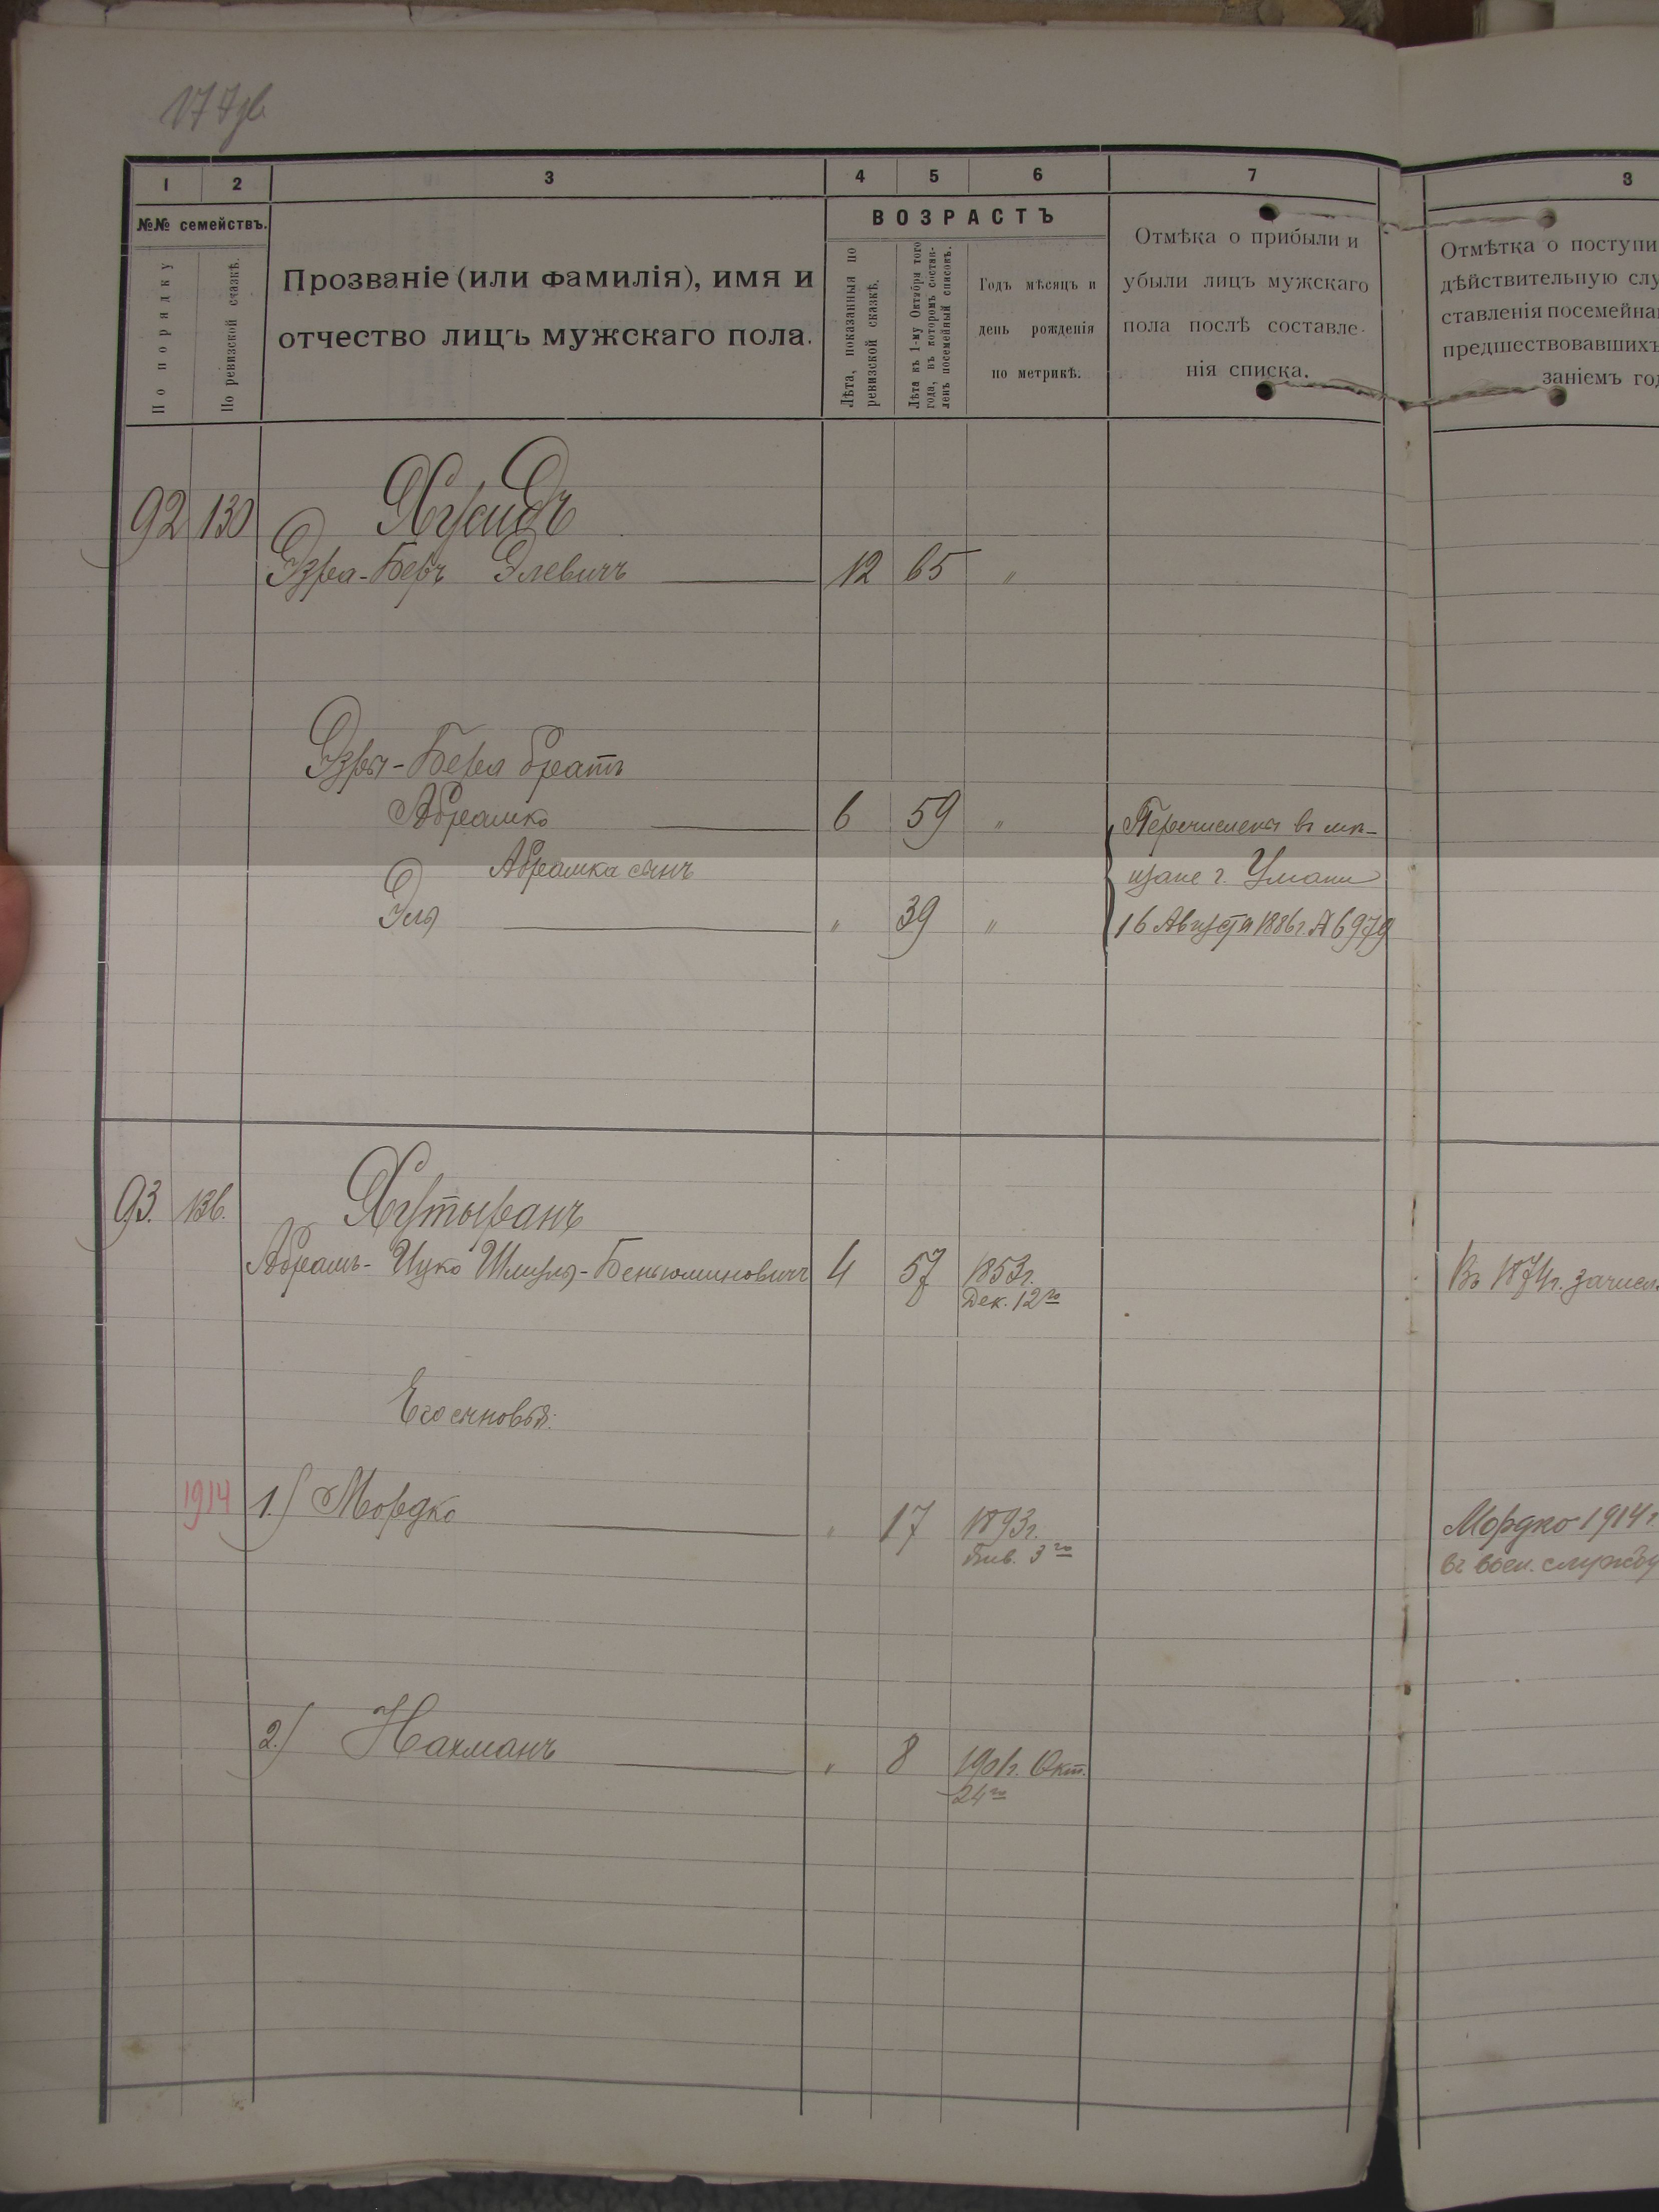 177 зв
1 2 3 4 5 6 7
№№ семействъ.
По порядку
По ревизской сказкѣ.
Прозваніе (или фамилія), имя и
отчество лицъ мужскаго пола.
ВОЗРАСТЪ
Лѣта, показанныя по
ревизской сказкѣ.
Лѣта къ 1-му Октября того
года, въ которомъ состав-
ленъ посемейный списокъ.
Годъ мѣсяцъ и
день рожденія
по метрикѣ.
Отмѣка о прибыли и
убыли лицъ мужскаго
пола послѣ составле-
нія списка.
92 130 Хусидъ
Эзра-Беръ Элевичъ 12 65 "
Эзры-Бера братъ
Абрамко 6 59 "
Перечислены въ мѣ-
Абрамка сынъ
щане г. Умани
Эля " 39 "
16 Августа 1886 г. № 6979
93. 136. Хутыранъ
Абрамъ-Ицко Шмуля-Беньюминовичъ 4 57 1853 г.
Дек. 12го
Его сыновья:
1914 1.) Мордко " 17 1893 г.
Янв. 3го
2.) Нахманъ " 8 1901 г. Окт.
24го
8
Отмѣтка о поступи
дѣйствительную слу
ставленія посемейна
предшествовавшихъ
заніемъ год
Въ 1874 г. зачисл.
Мордко 1914 г
въ воен. службу